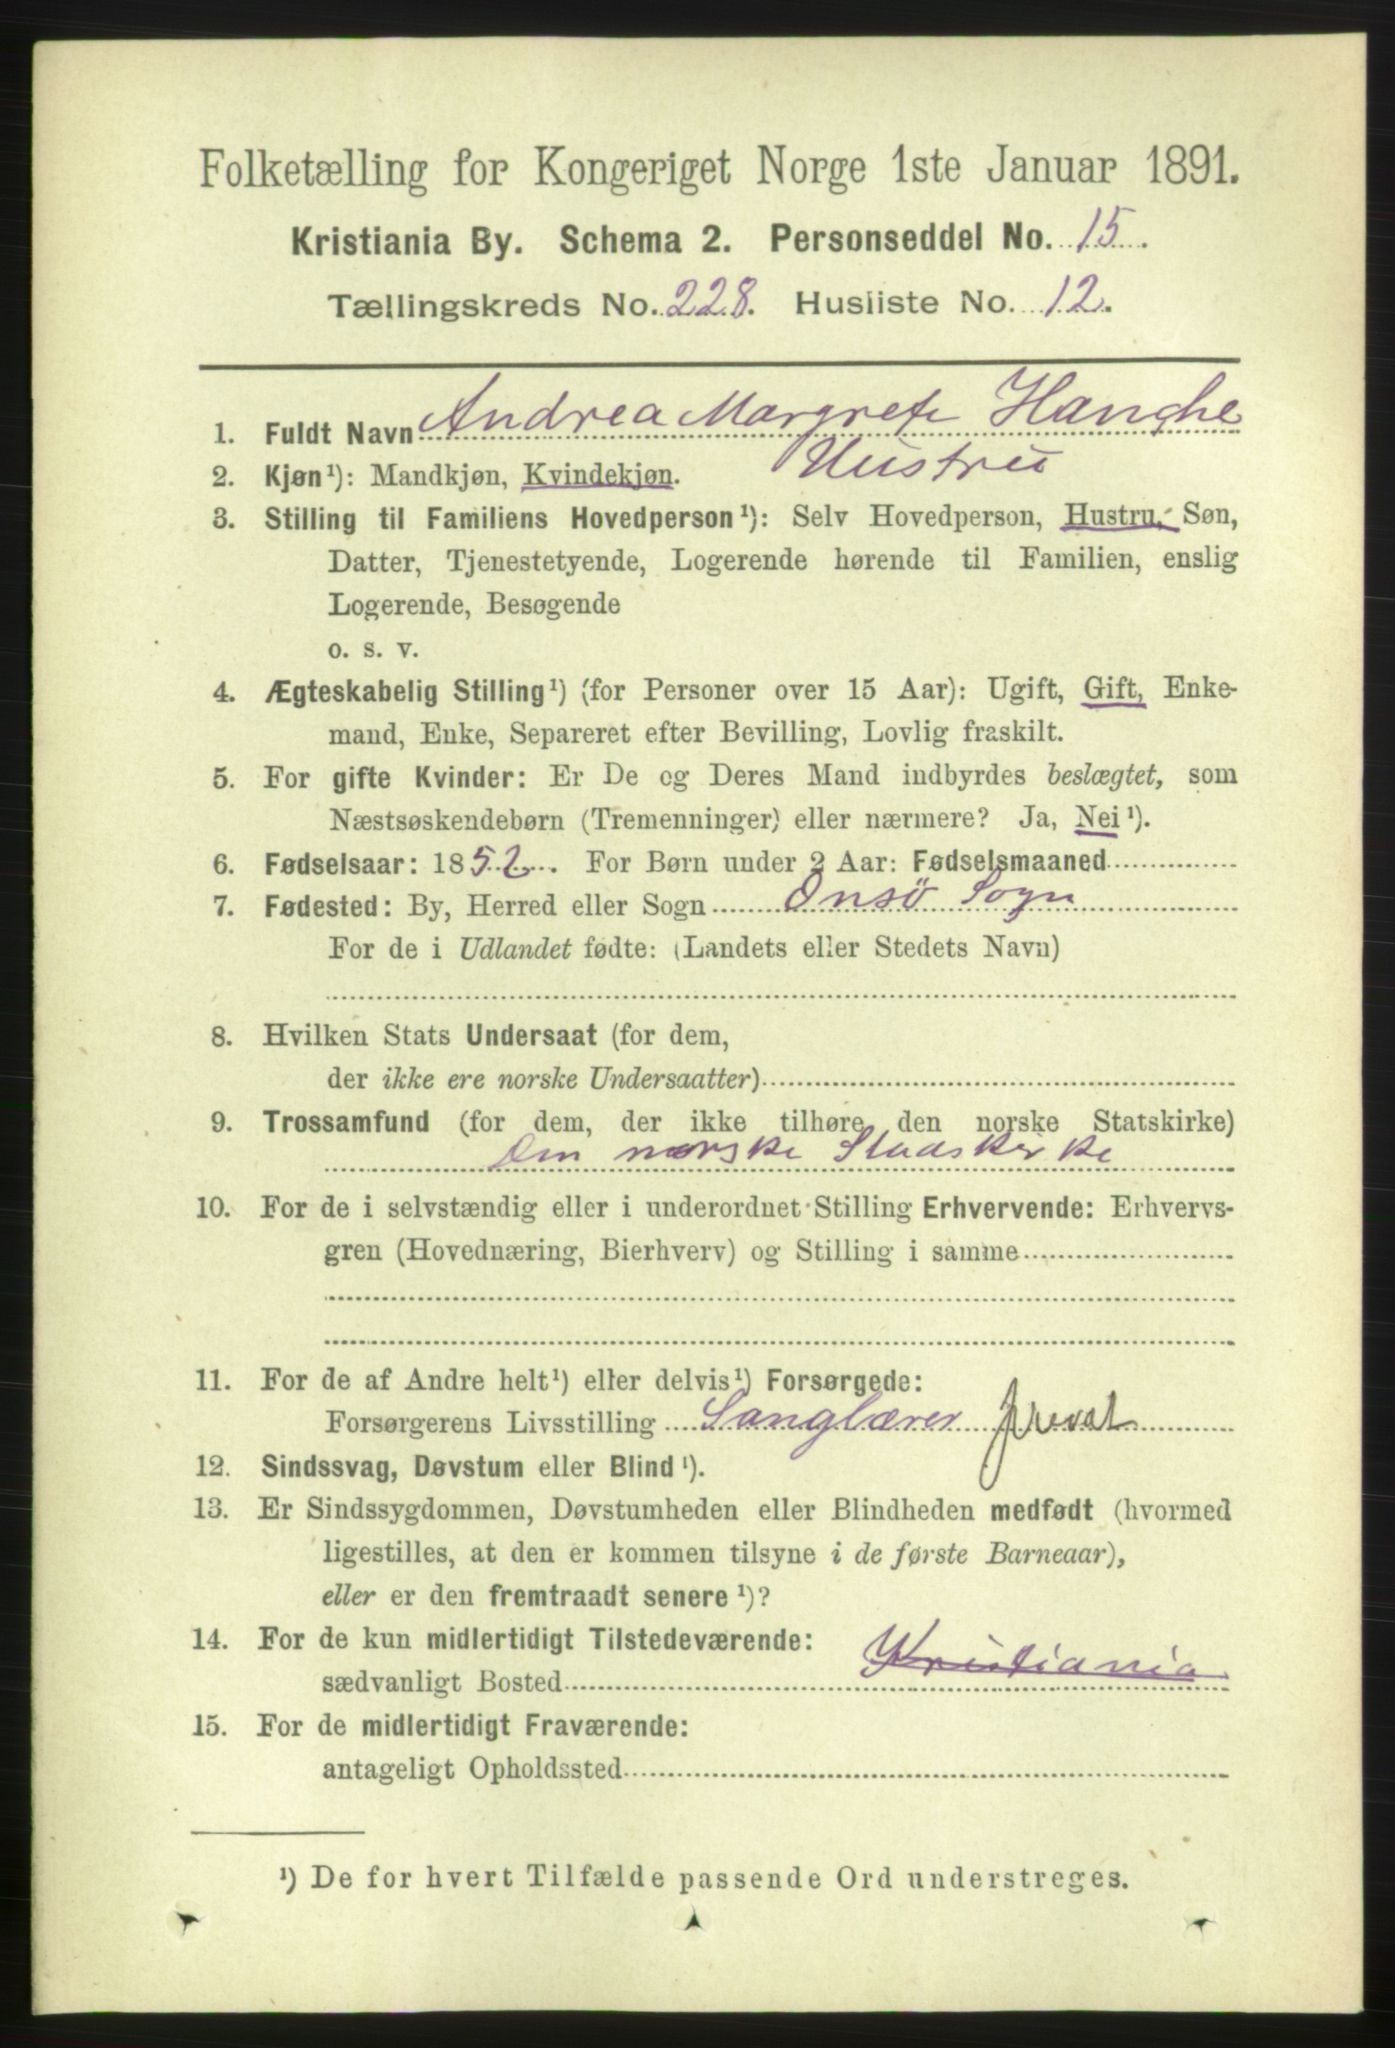 Folketælling for Kongeriget Norge 1ste Januar 1891.
Kristiania By. Schema 2. Personseddel No. 15.
Tællingskreds No. 228. Husliste No. 12.
1. Fuldt Navn Andrea Margrete Hanche
Hustru
2. Kjøn¹): Mandkjøn, Kvindekjøn.
3. Stilling til Familiens Hovedperson¹): Selv Hovedperson, Hustru, Søn,
Datter, Tjenestetyende, Logerende hørende til Familien, enslig
Logerende, Besøgende
o. s. v.
4. Ægteskabelig Stilling¹) (for Personer over 15 Aar): Ugift, Gift, Enke-
mand, Enke, Separeret efter Bevilling, Lovlig fraskilt.
5. For gifte Kvinder: Er De og Deres Mand indbyrdes beslægtet, som
Næstsøskendebørn (Tremenninger) eller nærmere? Ja, Nei¹).
6. Fødselsaar: 1852. For Børn under 2 Aar: Fødselsmaaned
7. Fødested: By, Herred eller Sogn Onsö Sogn
For de i Udlandet fødte: (Landets eller Stedets Navn)
8. Hvilken Stats Undersaat (for dem,
der ikke ere norske Undersaatter)
9. Trossamfund (for dem, der ikke tilhøre den norske Statskirke)
Den norske Staaskirke
10. For de i selvstændig eller i underordnet Stilling Erhvervende: Erhvervs-
gren (Hovednæring, Bierhverv) og Stilling i samme
11. For de af Andre helt¹) eller delvis¹) Forsørgede:
Forsørgerens Livsstilling Sanglærer privat
12. Sindssvag, Døvstum eller Blind¹).
13. Er Sindssygdommen, Døvstumheden eller Blindheden medfødt (hvormed
ligestilles, at den er kommen tilsyne i de første Barneaar),
eller er den fremtraadt senere¹)?
14. For de kun midlertidigt Tilstedeværende:
sædvanligt Bosted Kristiania
15. For de midlertidigt Fraværende:
antageligt Opholdssted
¹) De for hvert Tilfælde passende Ord understreges.